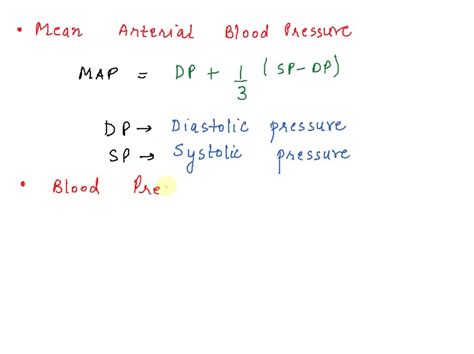 • Mean Arterial Blood Pressure
MAP = DP + 1/3 (SP-DP)
DP → Diastolic pressure
SP → Systolic pressure
• Blood Pre